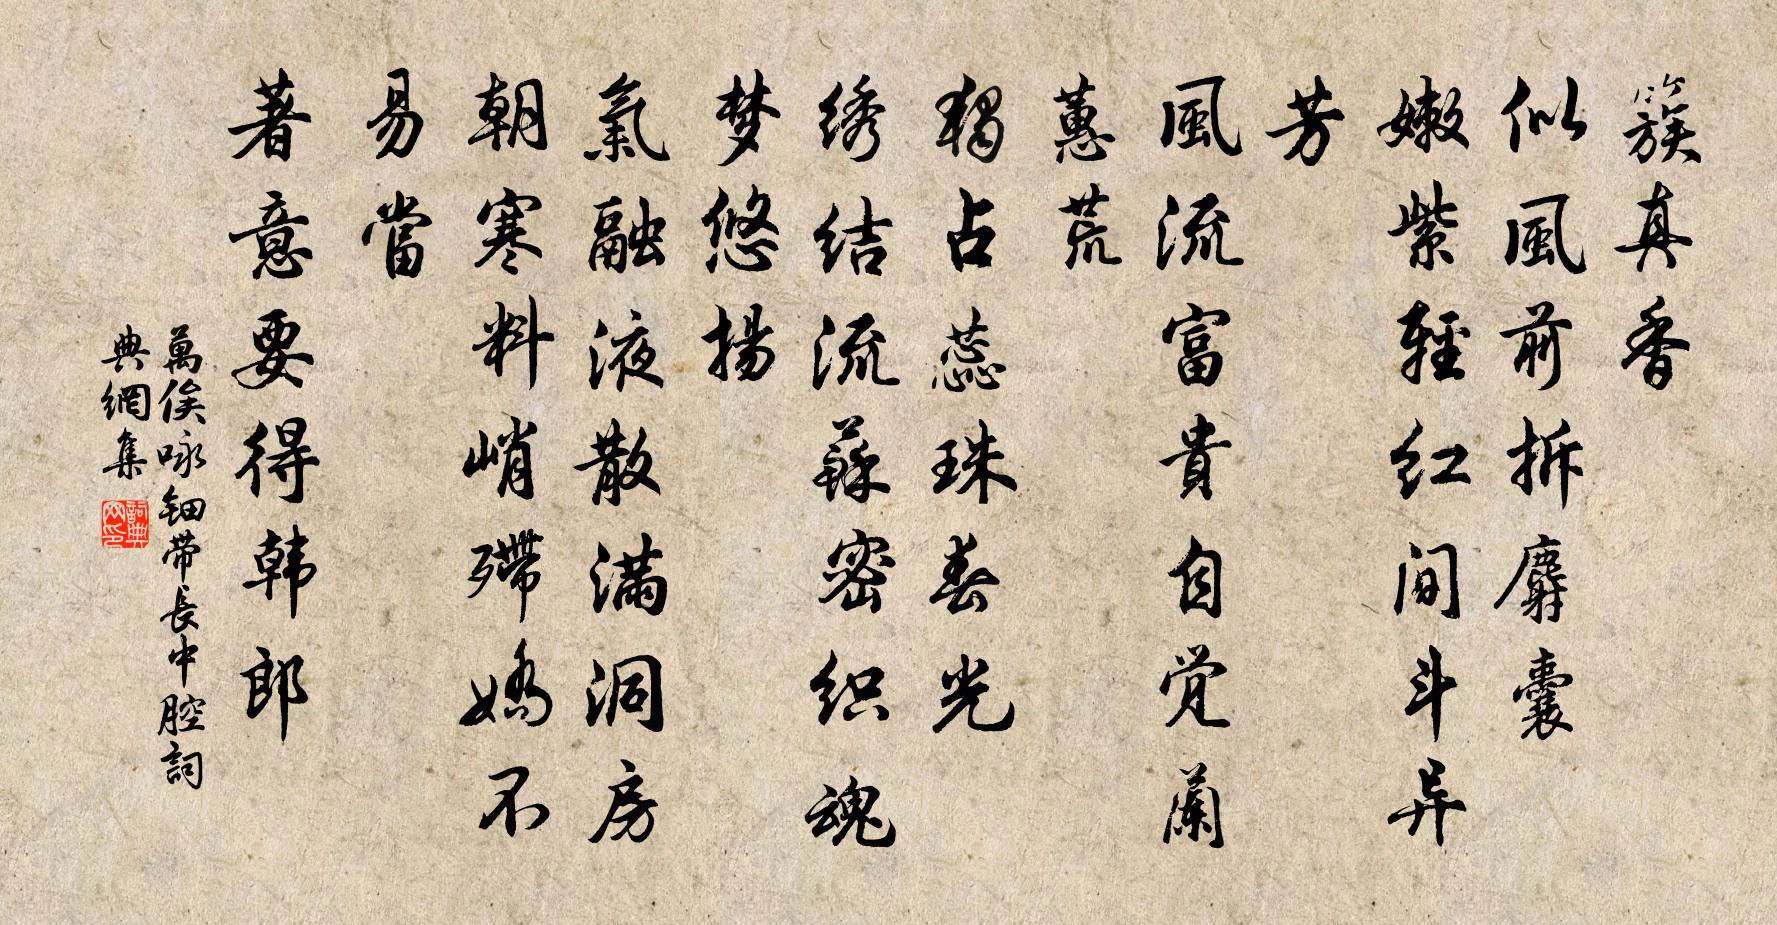 簇真香
似風前拆麝囊
嫩紫輕红间斗异
芳
風流富貴自觉蘭
蕙荒
獨占蕊珠春光
绣结流蘇密织魂
梦悠揚
氣融液散满洞房
朝寒料峭殢嬌不
易當
著意要得韩郎
萬俟咏钿带長中腔詞
典網集
詞典网印